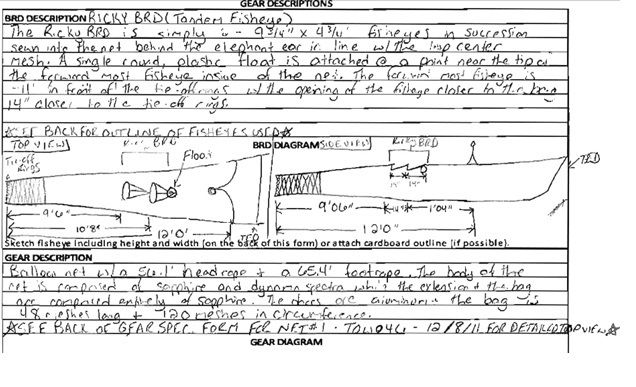 GEAR DESCRIPTIONS
BRD DESCRIPTION RICKY BRD (Tandem Fisheye)
The Ricky BRD is simply 9 3/4" x 4 3/4" fisheyes in succession
sewn into the net behind the elephant ear in line w/ the top center
mesh. A single round, plastic float is attached @ a point near the tip of
the forward most fisheye inside of the net. The forward most fisheye is
11' in front of the tie-off rings w/ the opening of the fisheye closer to the
14" closer to the tie-off rings.
*SEE BACK FOR OUTLINE OF FISHEYES USED*
TOP VIEW BRD BRD DIAGRAM SIDE VIEW Ricky BRD
Tie-off Rings Float TED
9'6" 9'06" 1'04"
10'8" 12'0" TED 12'0"
Sketch fisheye including height and width (on the back of this form) or attach cardboard outline (if possible).
GEAR DESCRIPTION
Balloon net w/ a 56.1' headrope + a 65.4' footrope. The body of the
net is composed of sapphire and dynama spectra while the extension + the bag
are composed entirely of sapphire. The doors are aluminum the bag is
48 meshes long + 120 meshes in circumference.
*SEE BACK OF GEAR SPEC. FORM FOR NET #1 - TOW046 - 12/8/11 FOR DETAILED TOP VIEW*
GEAR DIAGRAM